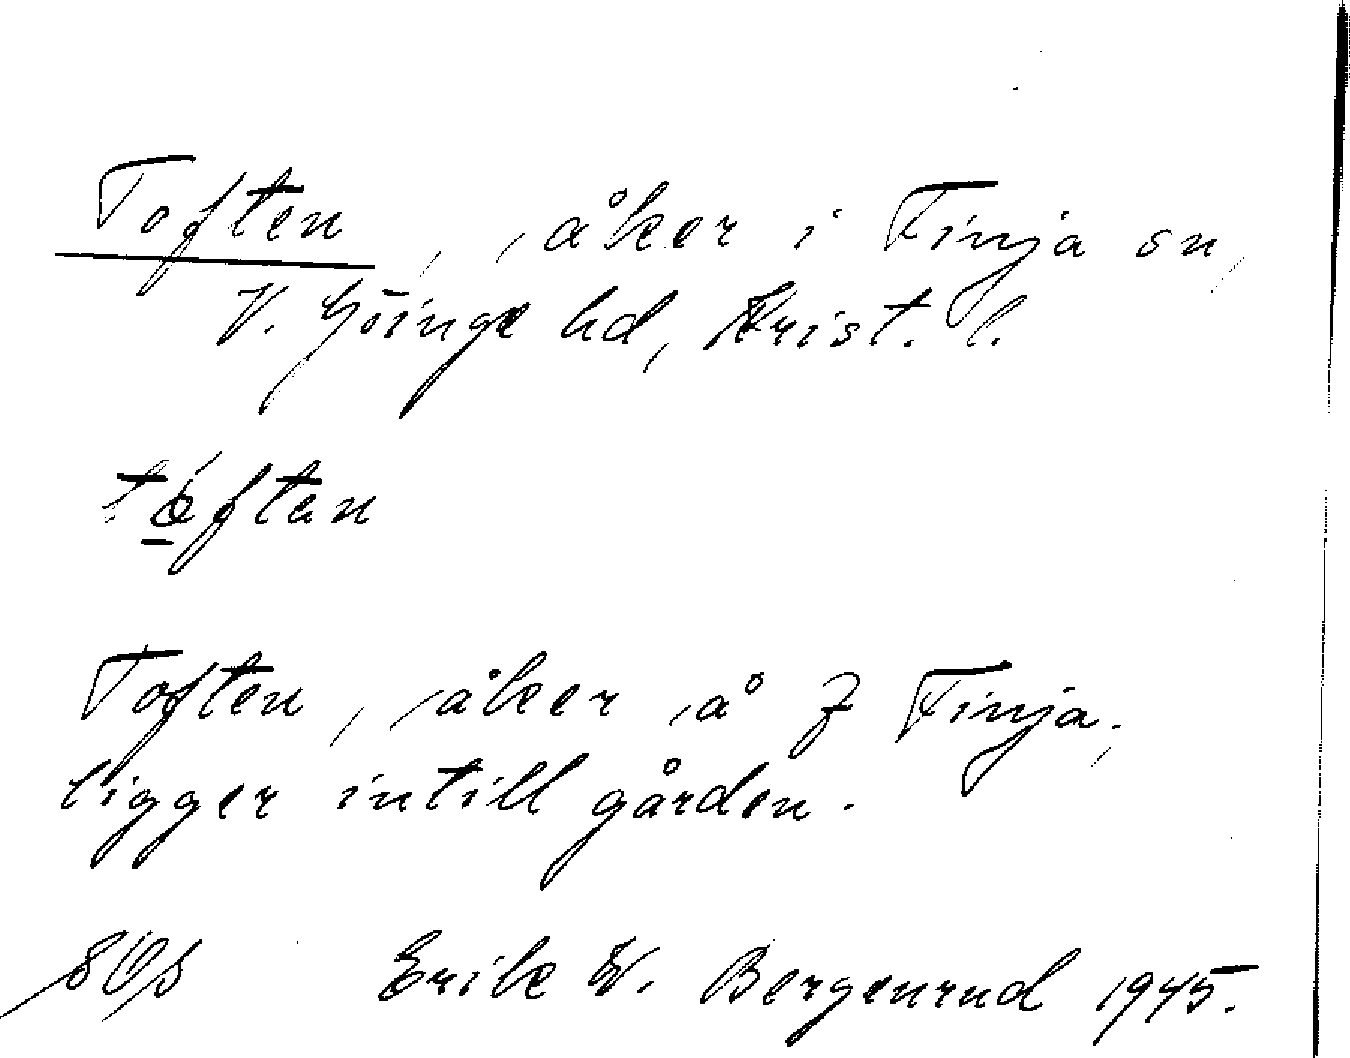 Toften, åker i Finja sn,
V. Göinge hd, Krist. l.
tóften
Toften, åker å 7 Finja;
ligger intill gården.
Erik W. Bergenrud 1945.